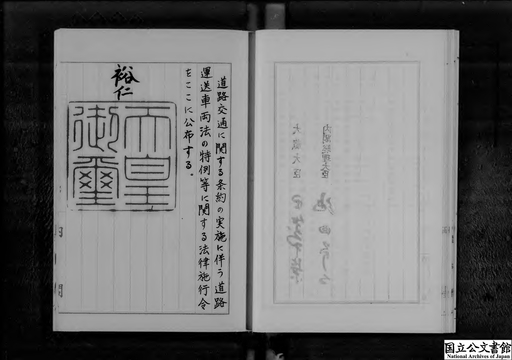 道路交通に関する条約の実施に伴う道路
運送車両法の特例等に関する法律施行令
をここに公布する。
裕仁
天皇
御璽
内閣総理大臣
大蔵大臣
国立公文書館
National Archives of Japan